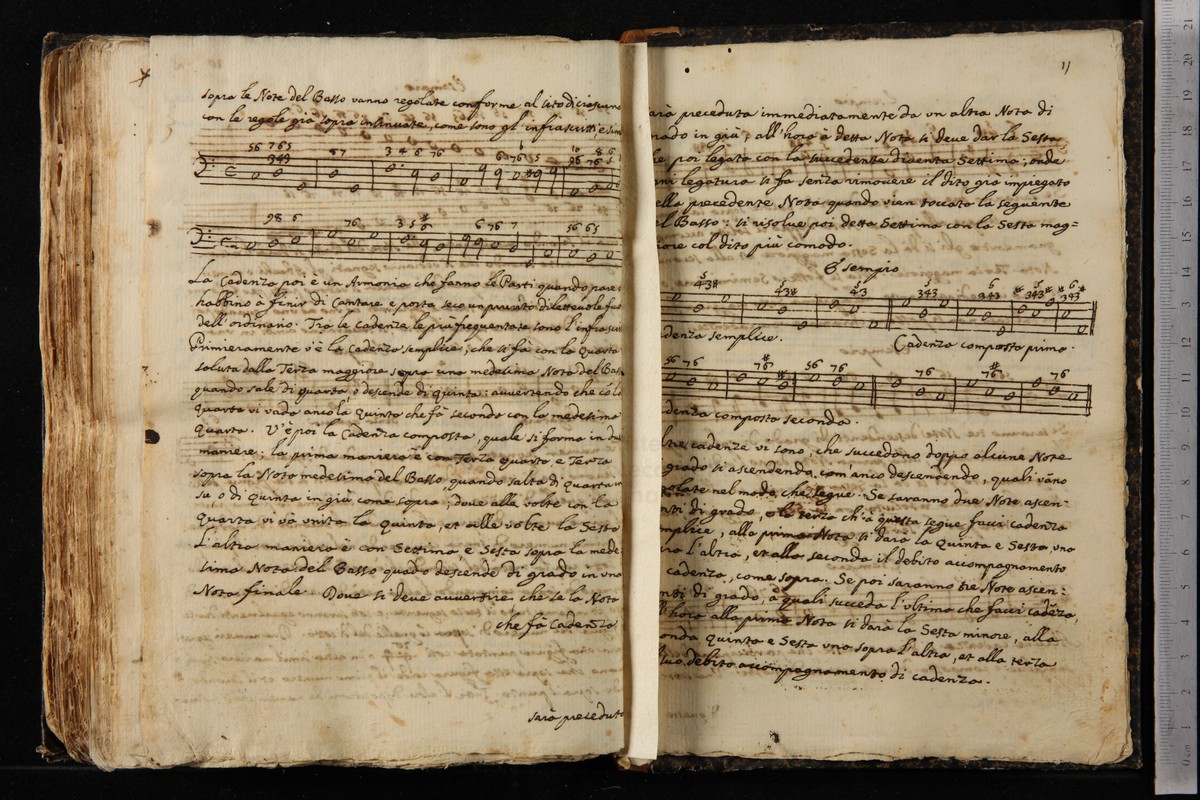 sopra le Note del Basso vanno regolate conforme al sito di ciascuno
con le regole già sopra insinuate, come sono gl' infrascritti
56 765
343
67
3 4 6 76
98 6
76
6 76 7
56 65
La Cadenza poi è un Armonia che fanno le Parti quando pare
habbino à finir di Cantare e porta seco un di letteuole
dell'ordinario. Tra le cadenze le più frequentate sono l'infras
Primieramente v'è la Cadenza semplice, che si fà con la Quarta
soluta dalla Terza maggiore sopra una medesima Nota del Bas
quando sale di quarta, ò descende di Quinta: auuertendo che cō la
quarta vi vada ancola Quinta che fà seconda con la medesima
Quarta. V'è poi la Cadenza composta, quale si forma in du
maniere: la prima maniera è con Terza quarta e Terza
sopra la Nota medesima del Basso quando salta di quarta in
su, o di Quinta in giù come sopra; doue alle volte con la
Quarta vi và unita la quinta, et alle volte la Sesta
L'altra maniera è con Settima e Sesta sopra la mede
sima Nota del Basso quādo descende di grado in una
Nota finale. Doue si deue auuertire che se la Nota
che fà Cadenza
sarà preceduta
11
arà preceduta immediatamente da un altra Nota di
rado in giù; all'hora à detta Nota si deue dar la Sesta
he poi legata con la succedente diuenta Settima; onde
ni legatura si fà senza rimouere il dito già impiegato
ella precedente Nota quando vien toccata la seguente
el Basso: si risolue poi detta Settima con la Sesta mag=
iore col dito più comodo.
Esempio
43#
43#
43
343
6
343
denza semplice.
Cadenza composta prima.
56 76
76
56 76
76
76
76
denza composta seconda.
ltre cadenze vi sono, che succedono doppo alcune Note
grado si ascendenda, com'anco descendendo, quali vāno
olate nel modo, che segue. Se saranno due Note ascen-
nti di grado, e la terza ch'à questa segue facci cadenza
mplice, alla prima Nota si darà la Quinta e Sesta, una
ra l'altra, et alla seconda il debito accompagnamento
cadenza, come sopra. Se poi saranno tre Note ascen:
nti di grado, à quali succeda l'ultima che facci cadēza,
ll'hora alla prima Nota si darà la Sesta minore, alla
onda Quinta e Sesta una sopra l'altra, et alla terza
suo debito accompagnamento di cadenza.